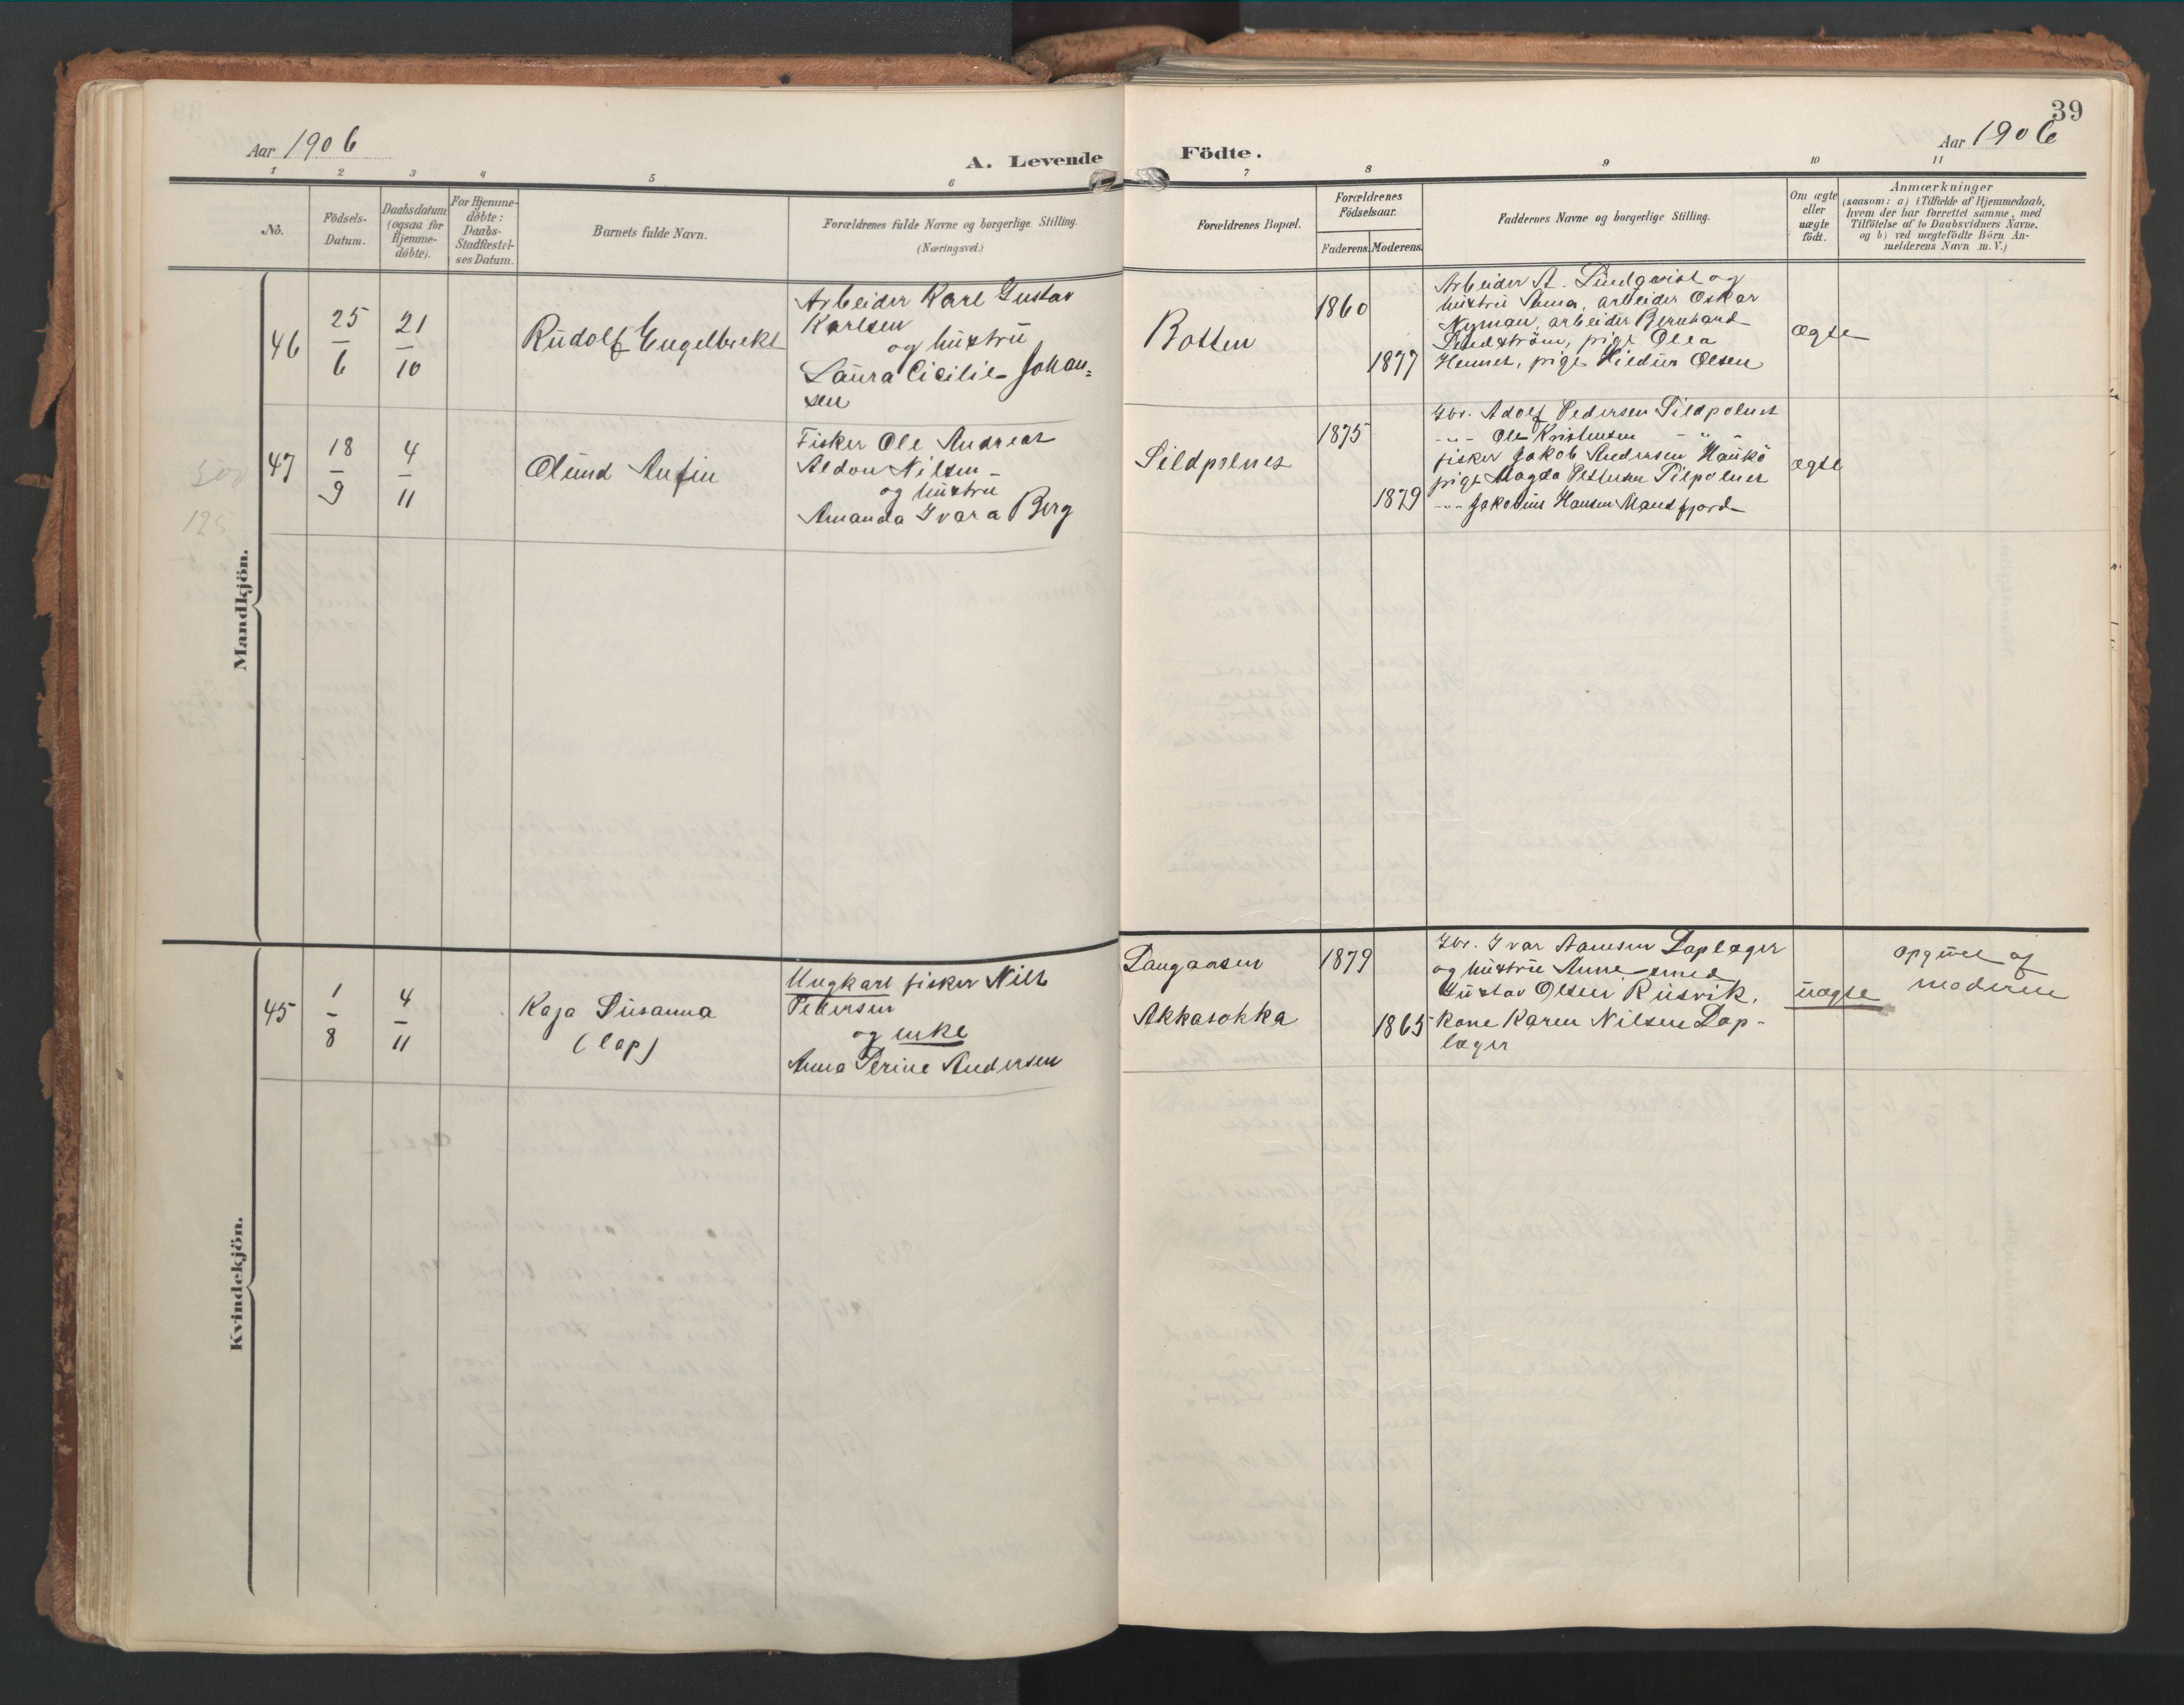 39
Aar 1906
A. Levende Födte.
Aar 1906
1 2 3 4 5 6 7 8 9 10 11
No.
Födsels-Datum.
Daabsdatum (ogsaa for Hjemme-döbte).
For Hjemme-döbte: Daabs-Stadfæstel-ses Datum.
Barnets fulde Navn.
Forældrenes fulde Navne og borgerlige Stilling.
(Næringsvei.)
Forældrenes Bopæl.
Forældrenes Födselsaar.
Faderens. Moderens.
Faddernes Navne og borgerlige Stilling.
Om ægte eller uægte födt.
Anmærkninger
(saasom: a) i Tilfælde af Hjemmedaab,
hvem der har forrettet samme, med
Tilföielse af to Daabsvidners Navne,
og b) ved uægtefödte Börn An-
melderens Navn m. V.)
Mandkjön.
46
25
6
21
10
Rudolf Engelbrekt
Arbeider Karl Gustav
Karlsen
og hustru
Laura Cicilie Johan=
sen
Botten
1860
1877
Arbeider A. Lindqvist og
hustru Anna, arbeider Oskar
Nyman, arbeider Bernhard
Lindström, pige Olea
pige Hildur Olsen
ægte
125
47
18
9
4
11
Olund Anfin
Fisker Ole Andreas
Aldon Nilsen
og hustru
Amanda Ivara Berg
Sildpolnes
1875
1879
Gbr. Adolf Pedersen Sildpolnes
-"- Ole Kristensen - " -
fisker Jakob Andersen Haukö
pige Magda Pettersen Silpolnes
-"- Hansen Mansfjord
ægte
Kvindekjön.
45
1
8
4
11
Kaja Susanna
(lap)
Ungkarl fisker Nils
Pedersen
og enke
Anna Perine Andersen
Langaasen
Akkasokka
1879
1865
Gbr. Ivar Aamesen Laplæger
og hustru Anne, smed
Gustav Olsen Rusvik,
kone Karen Nilsen Lap-
læger
uægte
opgivet af
moderen